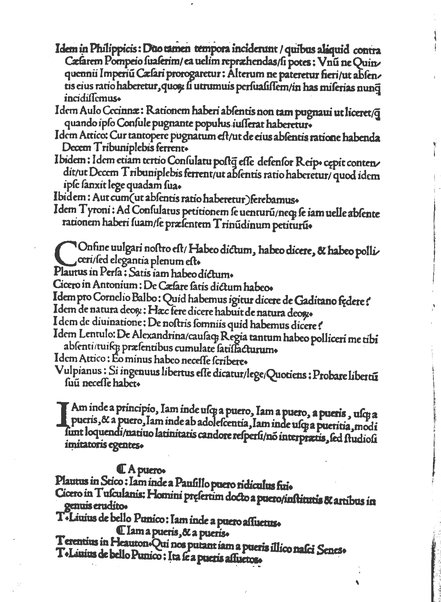 Idem in Philippicis: Duo tamen tempora inciderunt/ quibus aliquid contra
Cæsarem Pompeio suaserim/ ea uelim repræhendas/si potes: Vnũ ne Quin-
quennii Imperiũ Cæsari prorogaretur: Alterum ne pateretur fieri/ut absen-
tis eius ratio haberetur/quoꝝ si utrumuis persuasissem/in has miserias nunq̃
incidissemus.
Idem Aulo Cecinnæ: Rationem haberi absentis non tam pugnaui ut liceret/q̃
quando ipso Consule pugnante populus iusserat haberetur.
Idem Attico: Cur tantopere pugnatum est/ut de eius absentis ratione habenda
Decem Tribuniplebis ferrent.
Ibidem: Idem etiam tertio Consulatu postq̃ esse defensor Reip. cępit conten-
dit/ut Decem Tribuniplebis ferrent/ut absentis ratio haberetur/ quod idem
ipse sanxit lege quadam sua.
Ibidem: Aut cum(ut absentis ratio haberetur)ferebamus.
Idem Tyroni: Ad Consulatus petitionem se uenturũ/neqꝫ se iam uelle absente
rationem haberi suam/se præsentem Trinũdinum petiturũ.
COnfine uulgari nostro est/ Habeo dictum, habeo dicere, & habeo polli-
ceri/sed elegantia plenum est.
Plautus in Persa: Satis iam habeo dictum.
Cicero in Antonium: De Cæsare satis dictum habeo.
Idem pro Cornelio Balbo: Quid habemus igitur dicere de Gaditano fędere?
Idem de natura deoꝝ: Hæc fere dicere habui de natura deoꝝ.
Idem de diuinatione: De nostris somniis quid habemus dicere?
Idem Lentulo: De Alexandrina/causaqꝫ Regia tantum habeo polliceri me tibi
absenti/tuisqꝫ præsentibus cumulate satisfacturum.
Idem Attico: Eo minus habeo necesse scribere.
Vulpianus: Si ingenuus libertus esse dicatur/lege/Quotiens: Probare libertũ
suũ necesse habet.
IAm inde a principio, Iam inde usqꝫ a puero, Iam a puero, a pueris, usqꝫ a
pueris,& a puero, Iam inde ab adolescentia, Iam inde usqꝫ a pueritia, modi
sunt loquendi/natiuo latinitatis candore respersi/nõ interpretis, sed studiosi
imitatoris egentes.
¶ A puero.
Plautus in Stico: Iam inde a Pausillo puero ridiculus fui.
Cicero in Tusculanis: Homini pręsertim docto a puero/institutis & artibus in
genuis erudito.
T. Liuius de bello Punico: Iam inde a puero assuetus.
¶ Iam a pueris, & a puero.
Terentius in Heauton. Qui nos putant iam a pueris illico nasci Senes.
T. Liuius de bello Punico: Ita se a pueris assuetos.